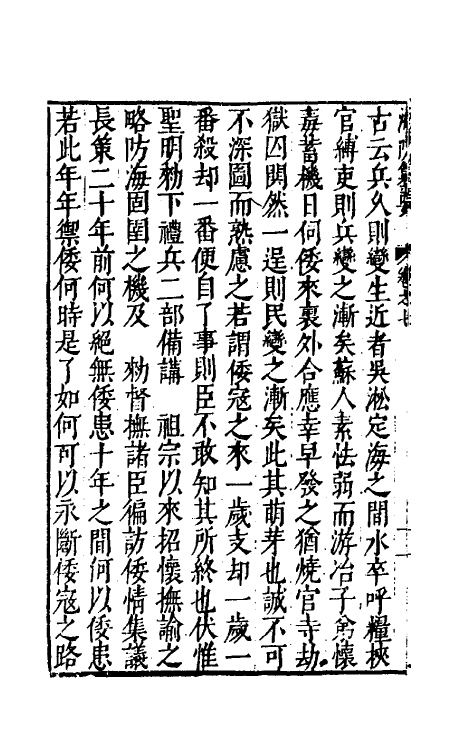 古云兵久則變生近者吳淞定海之間水卒呼糧挾
官縛吏則兵變之漸矣蘇人素怯弱而游冶子弟懷
毒蓄機日伺倭來裏外合應幸早發之猶燒官寺劫
獄囚閧然一逞則民變之漸矣此其萌芽也誠不可
不深圖而熟慮之若謂倭寇之來一歲支却一歲一
番殺却一番便自了事則臣不敢知其所終也伏惟
聖明勅下禮兵二部備講　祖宗以來招懷撫諭之
略防海固圉之機及　勅督撫諸臣徧訪倭情集議
長策二十年前何以絕無倭患十年之間何以倭患
若此年年禦倭何時是了如何可以永斷倭寇之路